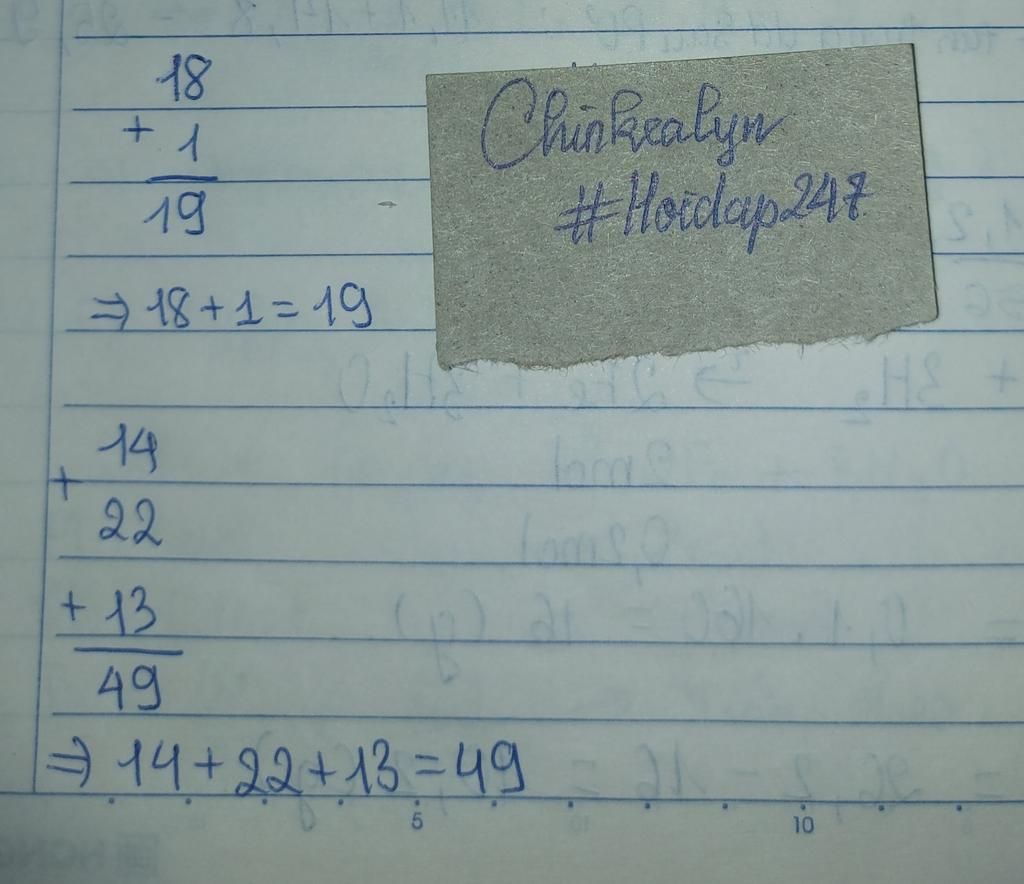 18
+ 1
19
⇒ 18 + 1 = 19
Chinkealyn
#Hoidap247
14
+
22
+ 13
49
⇒ 14 + 22 + 13 = 49
5
10